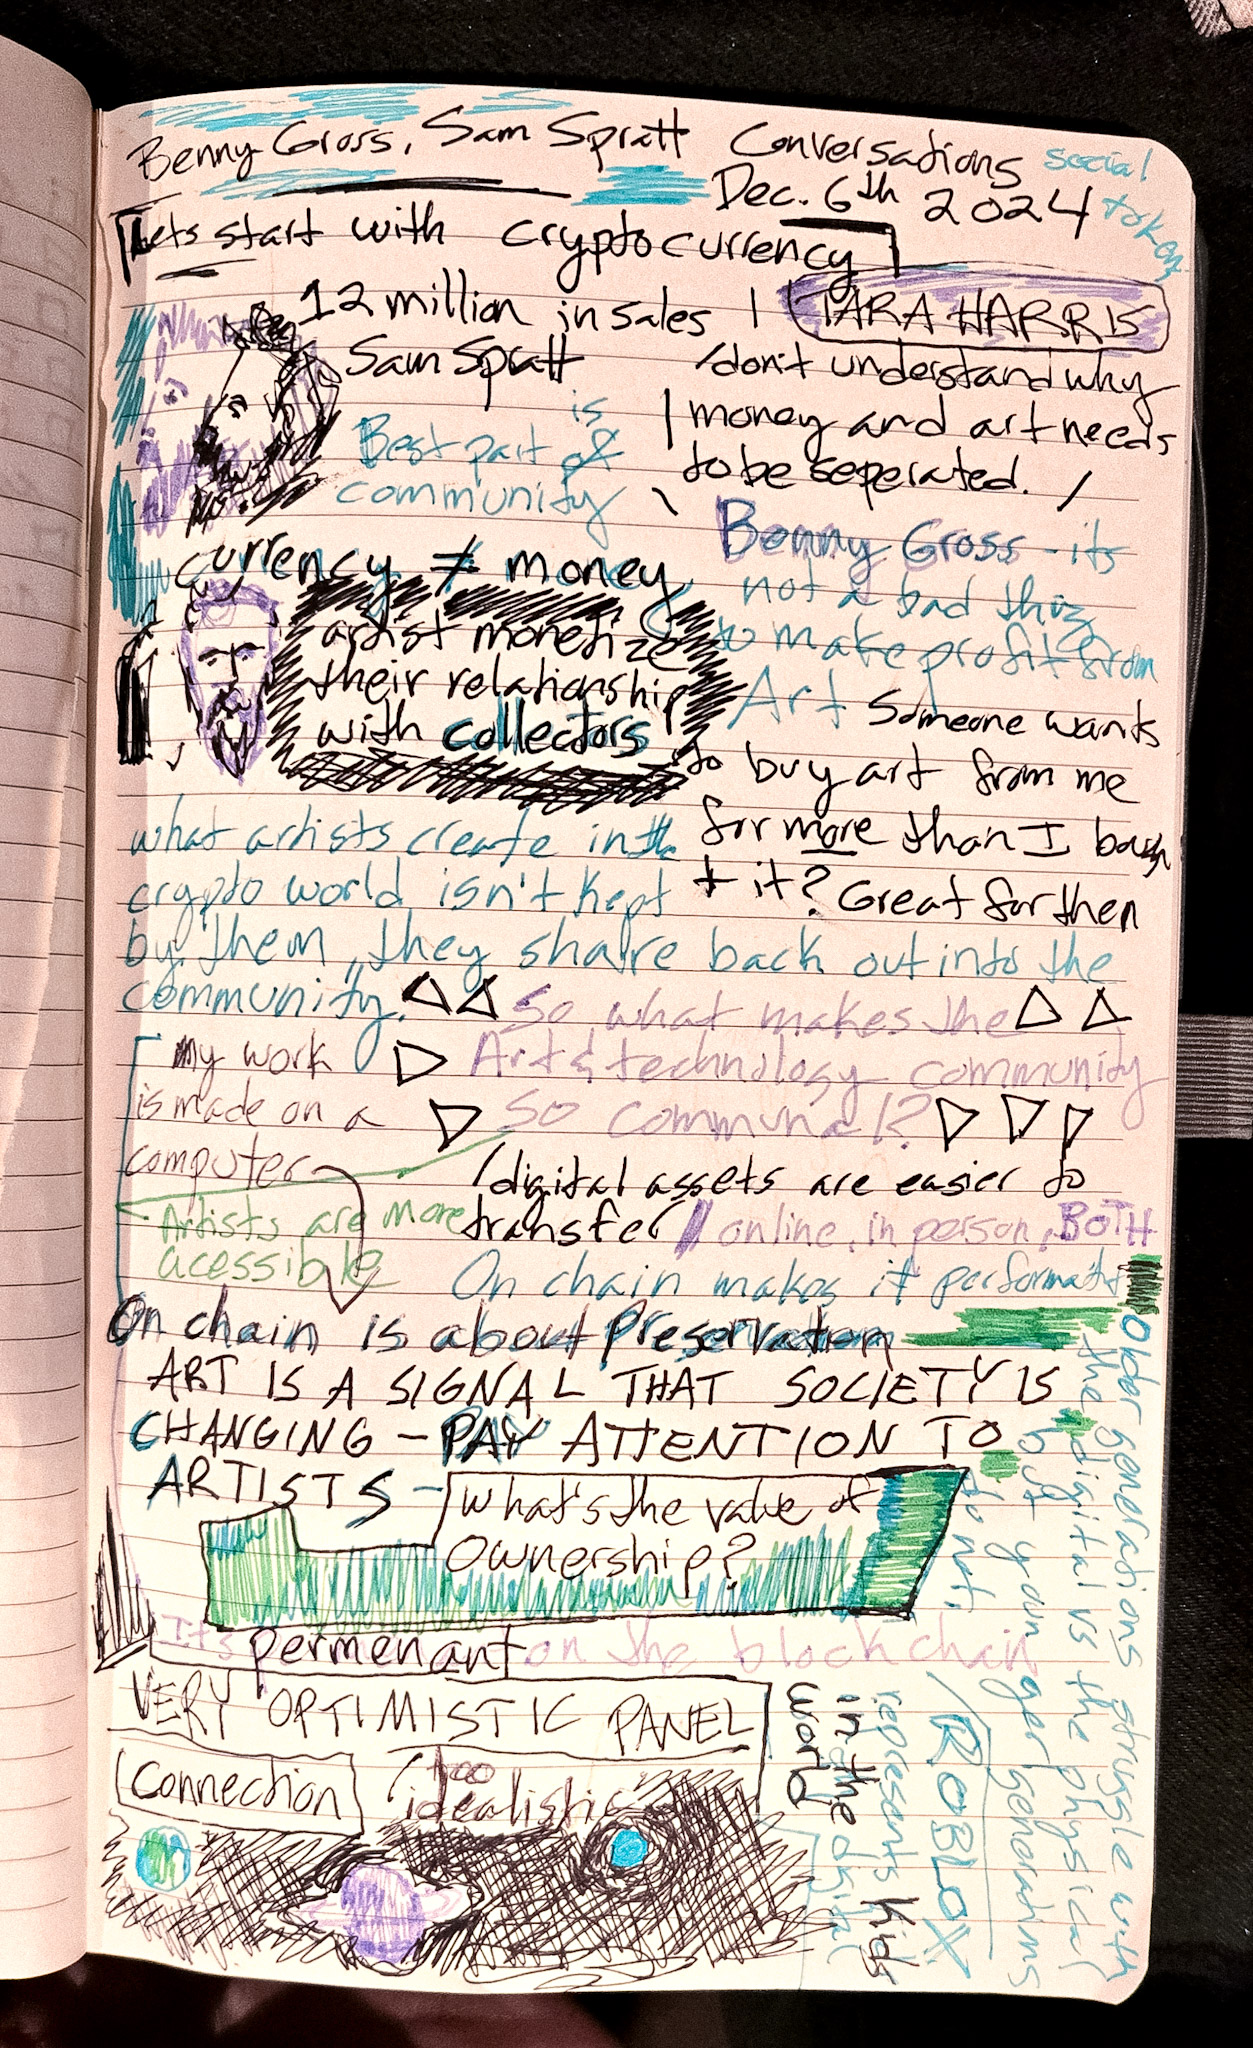 Benny Gross, Sam Spratt Conversations
Dec. 6th 2024
social
token
Lets start with cryptocurrency
12 million in sales
Sam Spratt
Best part is of
community
TARA HARRIS
don't understand why
money and art needs
to be seperated.
currency ≠ money
artist monetize
their relationship
with collectors
Benny Gross - its
not a bad thing
to make profit from
Art Someone wants
to buy art from me
for more than I bough
t it? Great for then
what artists create in the
crypto world isn't kept
by them, they share back out into the
community.
So what makes the
Art & technology community
So communal?
my work
is made on a
computer
Artists are more
acessible
digital assets are easier to
transfer online, in person, BOTH
On chain makes it
On chain is about preservation
ART IS A SIGNAL THAT SOCIETY IS
CHANGING - PAY ATTENTION TO
ARTISTS -
What's the value of
Ownership?
It's permenant on the blockchain
VERY OPTIMISTIC PANEL
Connection
too
idealistic
Older generations struggle with
the digital vs the physical
but younger generations
do not.
ROBLOX
represents kids
in the digital
world